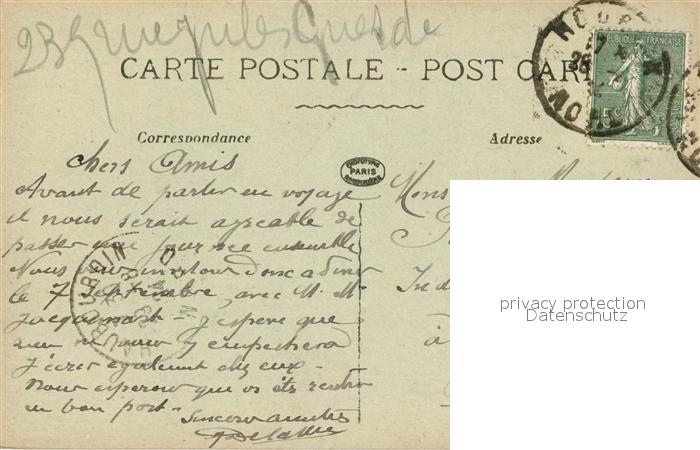 23 Rue Jules Guesde
CARTE POSTALE - POST CAR
RÉPUBLIQUE FRANÇAISE
Correspondance
Adresse
PARIS
Chers Amis
Avant de partir en voyage
il nous serait agréable de
passer une journée ensemble
Nous vous invitons donc a diner
le 7 Septembre, avec M. Me
Jacquemart - J'espère que
rien ne vous y empechera
J'écris également chez eux -
Nous esperons que vs êts rentrés
en bon port -
Sincères amitiés
Delattre
Mons
Ind
à
ROUBAIX
NORD
privacy protection
Datenschutz